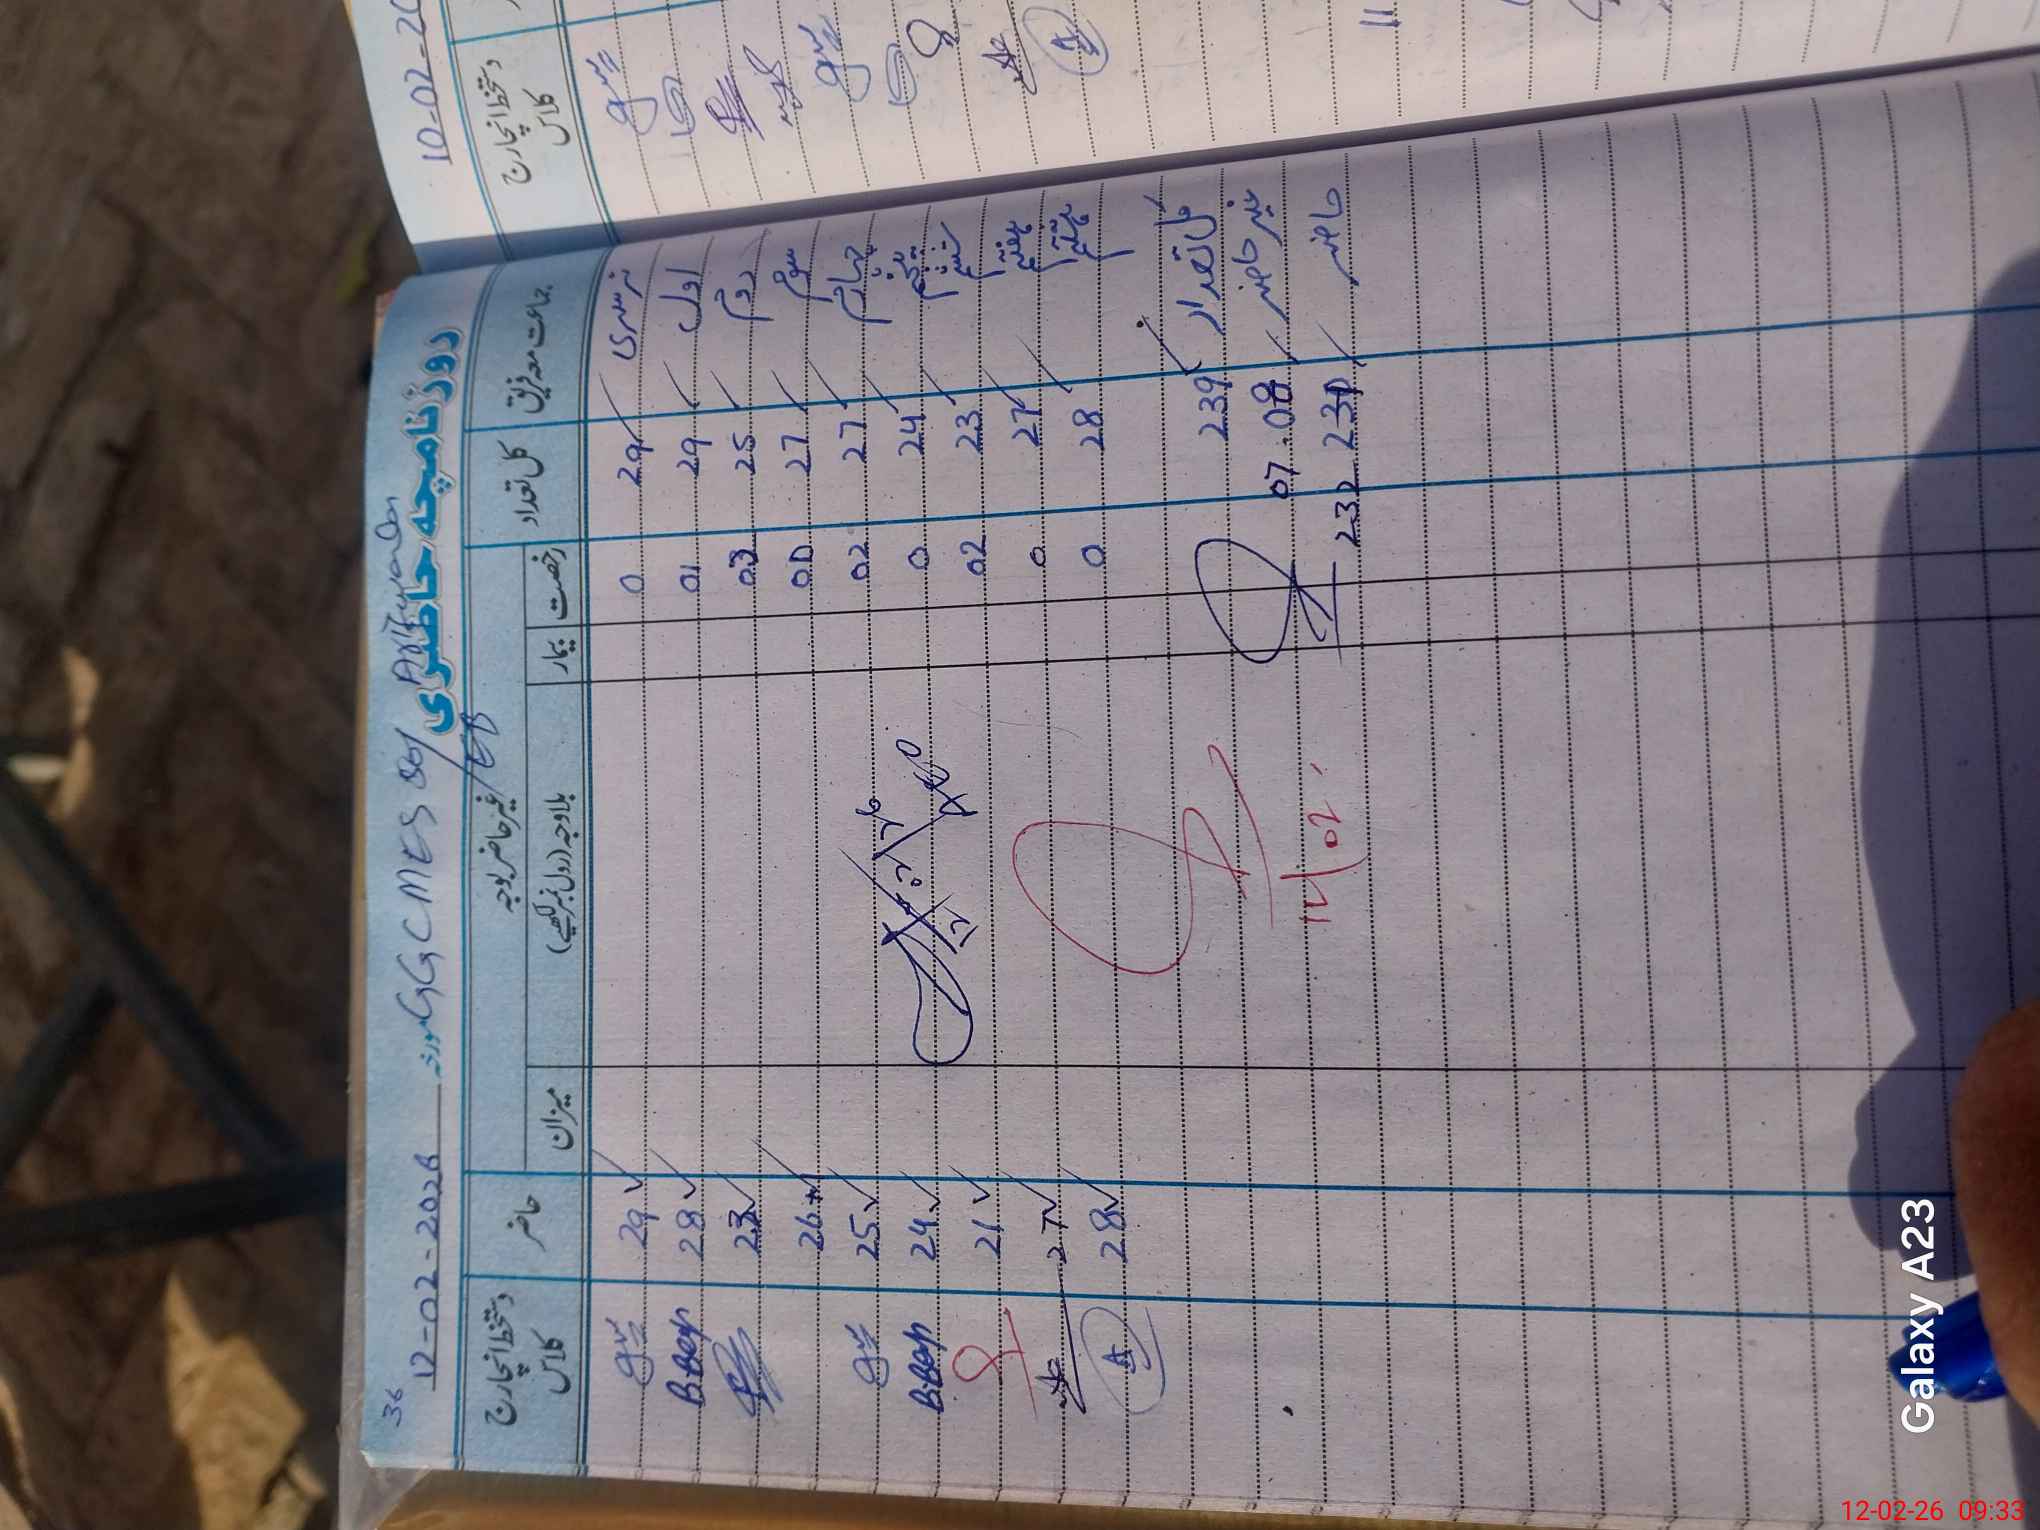 36
12-02-2026 مورخہ GGCMES
روزنامچہ حاضری
جماعت معہ فریق کل تعداد غیر حاضر بوجہ حاضر دستخط انچارج کلاس
رخصت بیمار بلاوجہ (رول نمبر لکھیے) میزان
نرسری 29 0 29
اول 29 01 28 B.Bap
دوم 25 03 23
سوم 27 00 26
چہارم 27 02 25
پنجم 24 0 24 B.Bap
ششم 23 02 21
ہفتم 27 0 27
ہشتم 28 0 28 A
کل تعداد 239
غیر حاضر 08 07
حاضر 231 232
12/02
10-02-20
دستخط انچارج کلاس
A
11
Galaxy A23
12-02-26 09:33